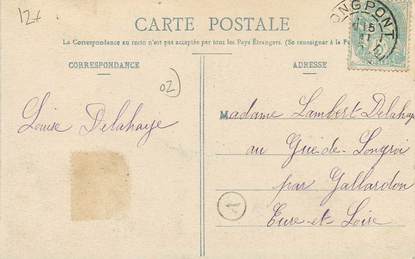 127
CARTE POSTALE
La Correspondance au recto n'est pas acceptée par tous les Pays Étrangers. (Se renseigner à la
CORRESPONDANCE
ADRESSE
ONGPONT
15
02
Louise Delahaye
Madame Lambert-Delahaye
au Gué-de-Longroi
par Gallardon
Eure-et-Loire
1